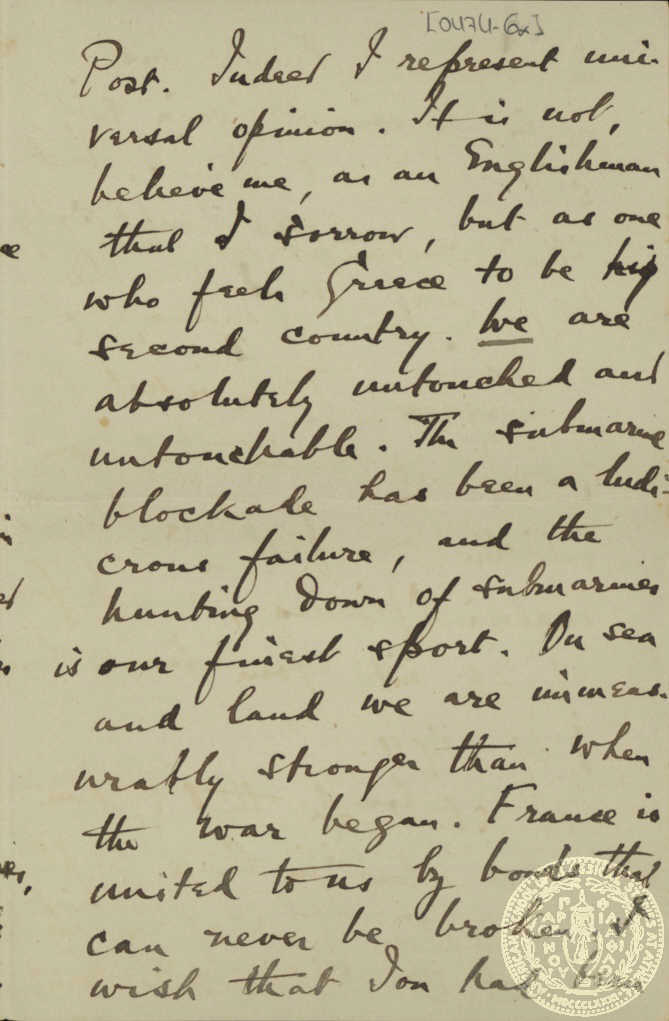 [0474-6x]
Post. Indeed I represent uni-
versal opinion. It is not,
believe me, as an Englishman
that I sorrow, but as one
who feels Greece to be his
second country. We are
absolutely untouched and
untouchable. The submarine
blockade has been a ludi-
crous failure, and the
hunting down of submarines
is our finest sport. On sea
and land we are immeas-
urably stronger than when
the war began. France is
united to us by bonds that
can never be broken. I
wish that you had been